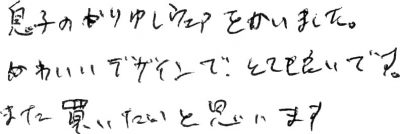 息子のかりゆしウェアをかいました。
かわいいデザインで、とても良いです。
また買いたいと思います